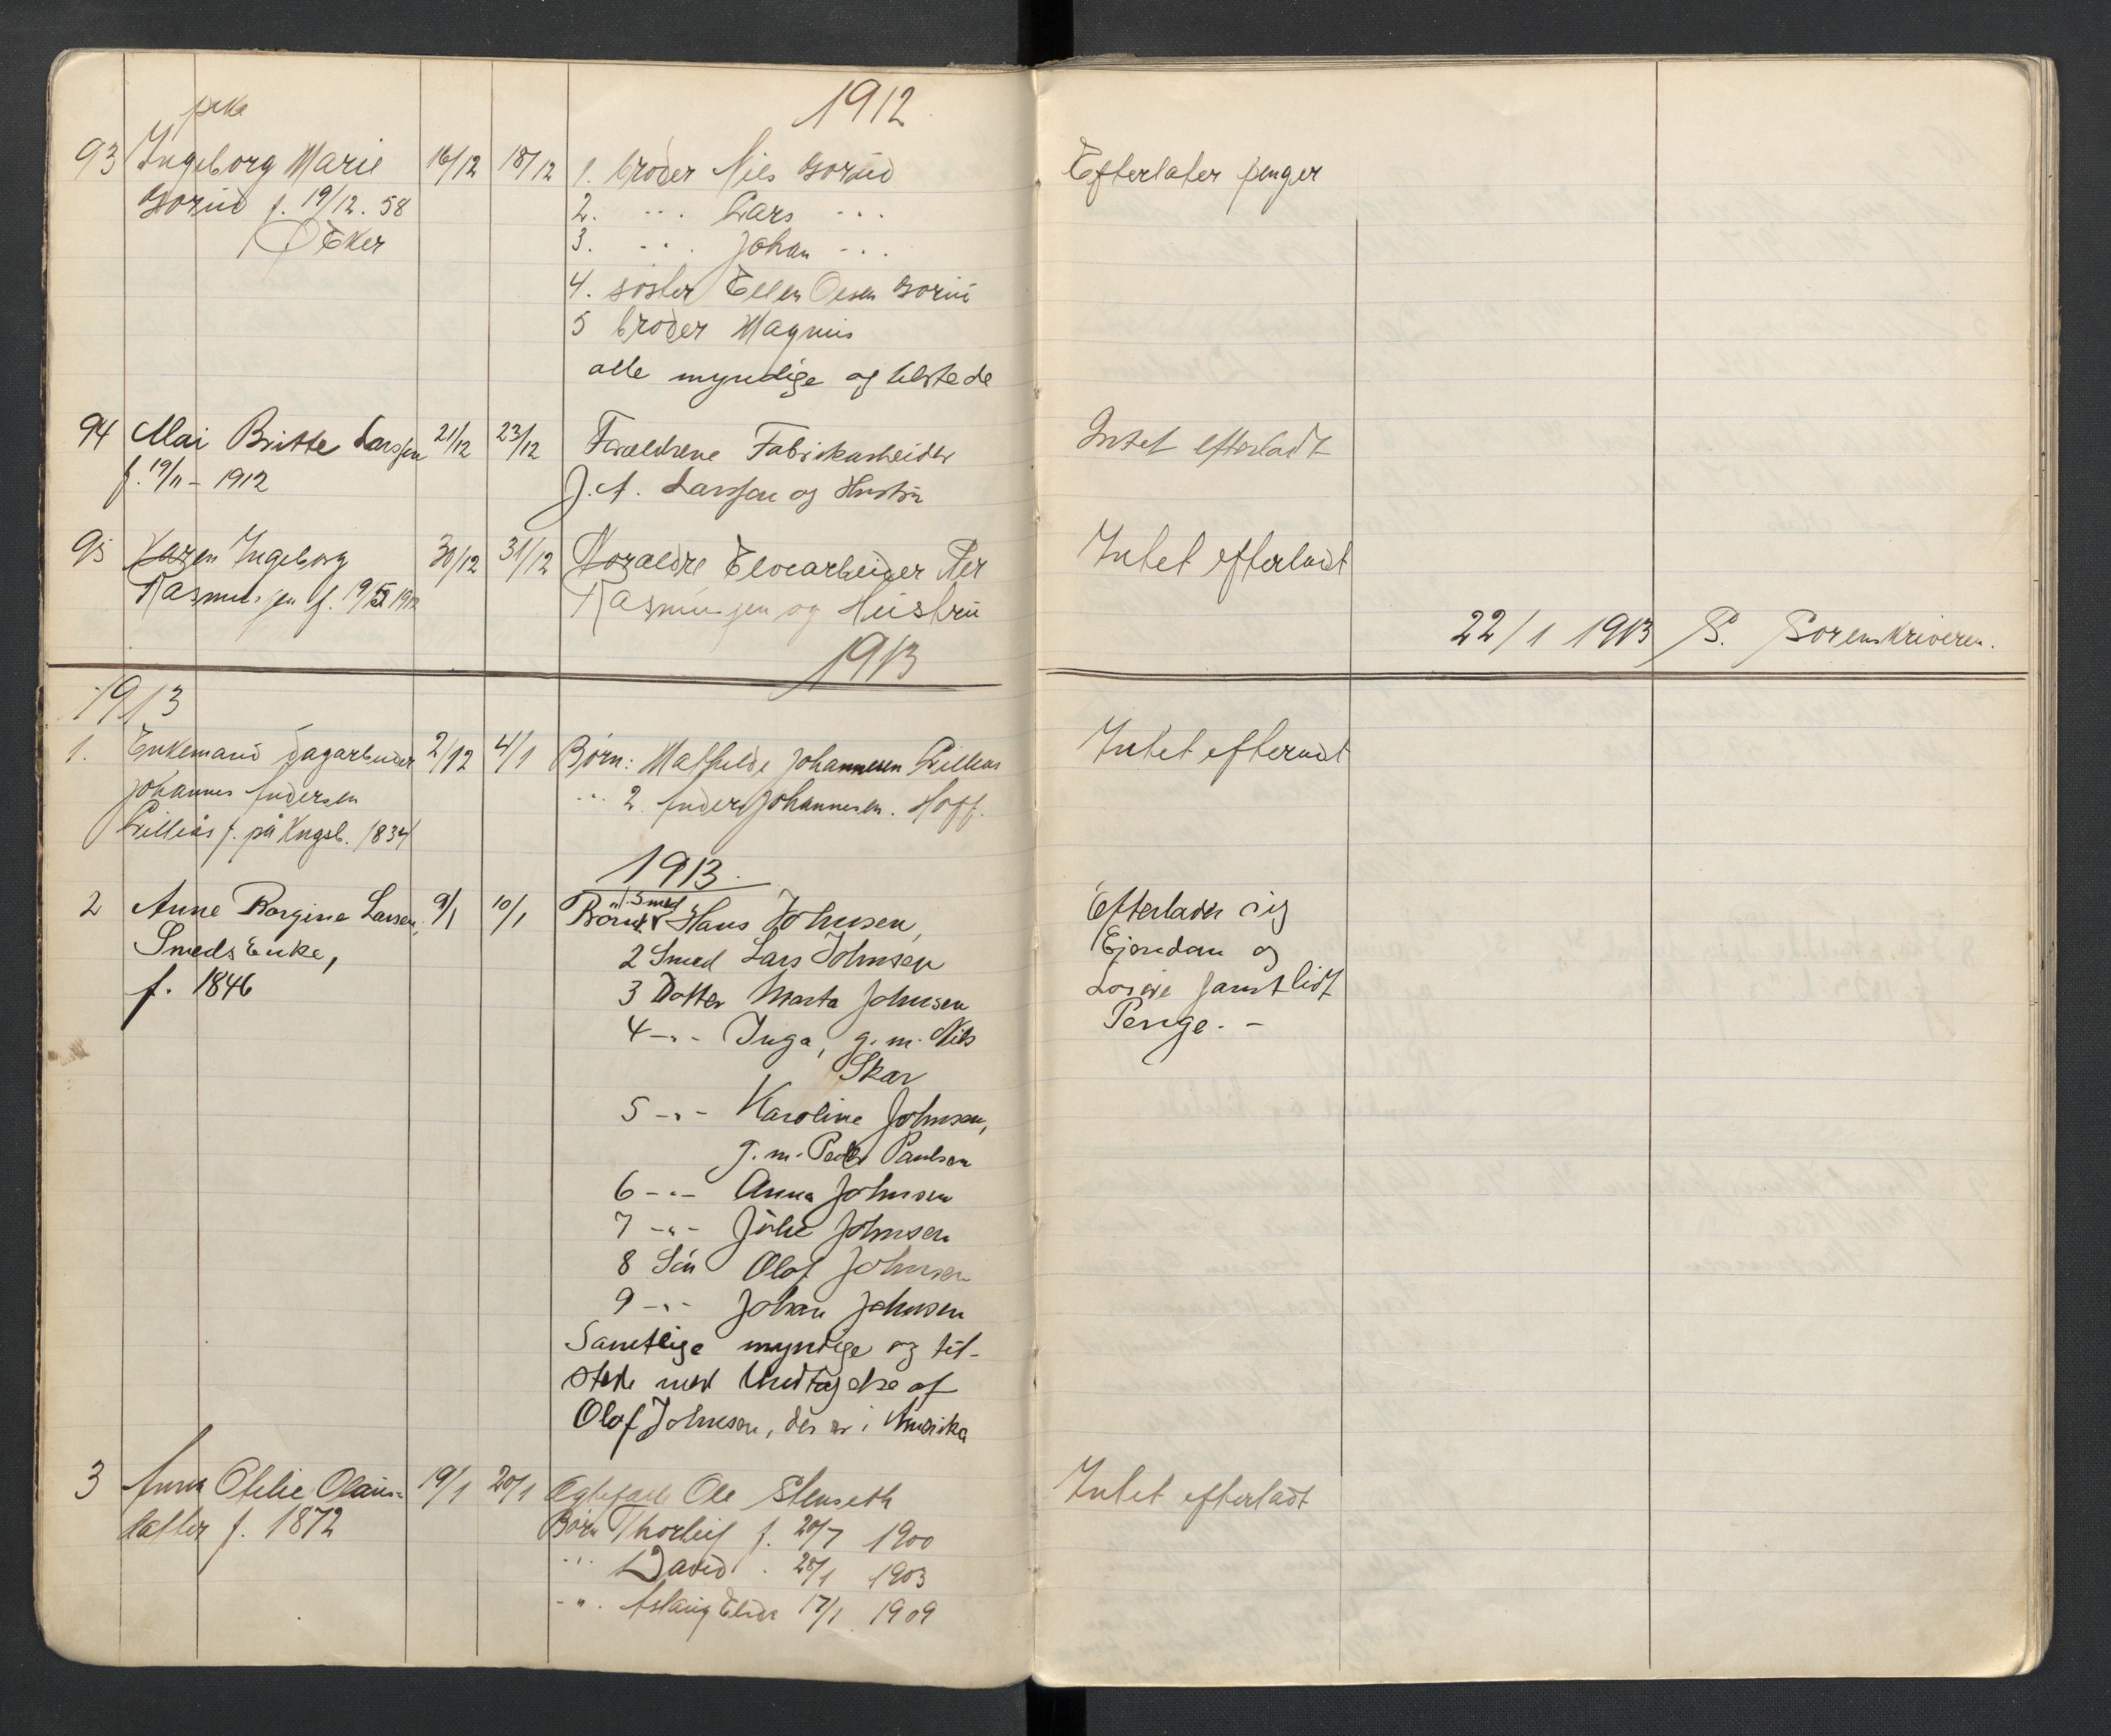 1912
pike
93 Ingeborg Marie 16/12 18/12 1. broder Nils Gorud Efterlater penger
Gorud f. 19/12. 58 2. - " - Lars - " -
Ø Eker 3. - " - Johan - " -
4. søster Ellen Olsen Gorud
5 broder Magnus
alle myndige og tilstede
94 Mai Britte Larssen 21/12 23/12 Forældrene Fabrikarbeider Intet efterladt
f. 19/11 - 1912 J. A. Larssen og Hustru
95 Karen Ingeborg 30/12 31/12 Foraldre Per Intet efterladt
Rasmussen f. 19/ 1912 Rasmussen og Hustru
22/1 1913 S. Sorenskriveren.
1913
1913
1. Enkemand dagarbeider 2/12 4/1 Børn: Mathilde Johannesen Lilleås Intet efterladt
Johannes Andersen - " - 2 Anders Johannesen. Hoff.
Lilleås f. på Kngsb. 1834
1913.
2 Anne Borgine Larsen, 9/1 10/1 Børn: 1 Smed Hans Johnsen, Efterlader sig
Smeds Enke, 2 Smed Lars Johnsen Ejendom og
f. 1846 3 Datter Marta Johnsen Løsøre samt lidt
4 - " - Inga, g. m. Nils Penge. -
Skar
5 - " - Karoline Johnsen,
g. m. Peder Paulsen
6 - " - Anna Johnsen
7 - " - Julie Johnsen
8 Søn Olaf Johnsen
9 - " - Johan Johnsen
Samtlige myndige og til-
stede med Undtagelse af
Olaf Johnsen, der er i Amerika
3 Anna Otilie Olaus- 19/1 20/1 Ægtefælle Ole Stenseth Intet efterladt
datter f. 1872 Børn Thorleif f. 20/7 1900
- " - David - 28/1 1903
- " - Aslaug 17/1 1909